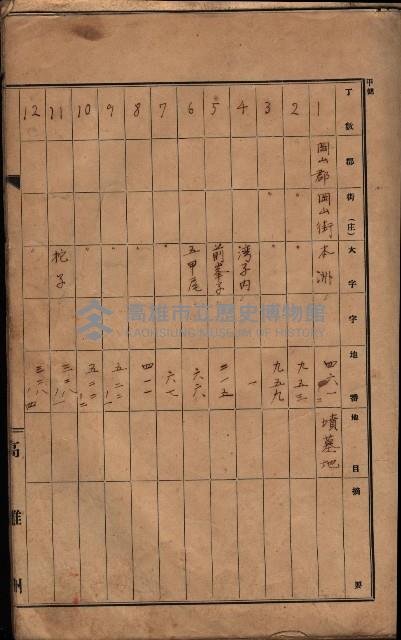 甲號
丁數 郡 街(庄) 大字 字 地番 地目 摘要
1 岡山郡 岡山街 本洲 四六一 墳墓地
2 〃 〃 〃 九五三
3 〃 〃 〃 九五九
4 湾子内 一
5 前峯子 三一五
6 五甲尾 六六
7 〃 六七
8 〃 四一一
9 〃 五二二ノ一
10 〃 五二二ノ二
11 柁子 三三八ノ一
12 〃 三三八ノ四
高雄州
高雄市立歷史博物館
KAOHSIUNG MUSEUM OF HISTORY